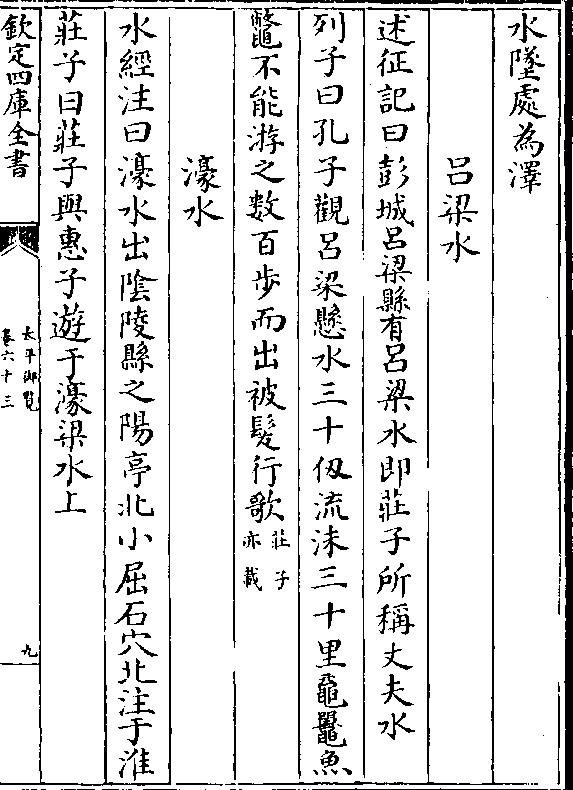 水墜處為澤
吕梁水
述征記曰彭城吕梁縣有吕梁水即莊子所稱丈夫水
列子曰孔子觀吕梁懸水三十仭流沫三十里黿鼉魚
鼈不能游之數百步而出被髮行歌莊子亦載
濠水
水經注曰濠水出陰陵縣之陽亭北小屈石穴北注于淮
莊子曰莊子與惠子遊于濠梁水上
欽定四庫全書
太平御覧
卷六十三
九